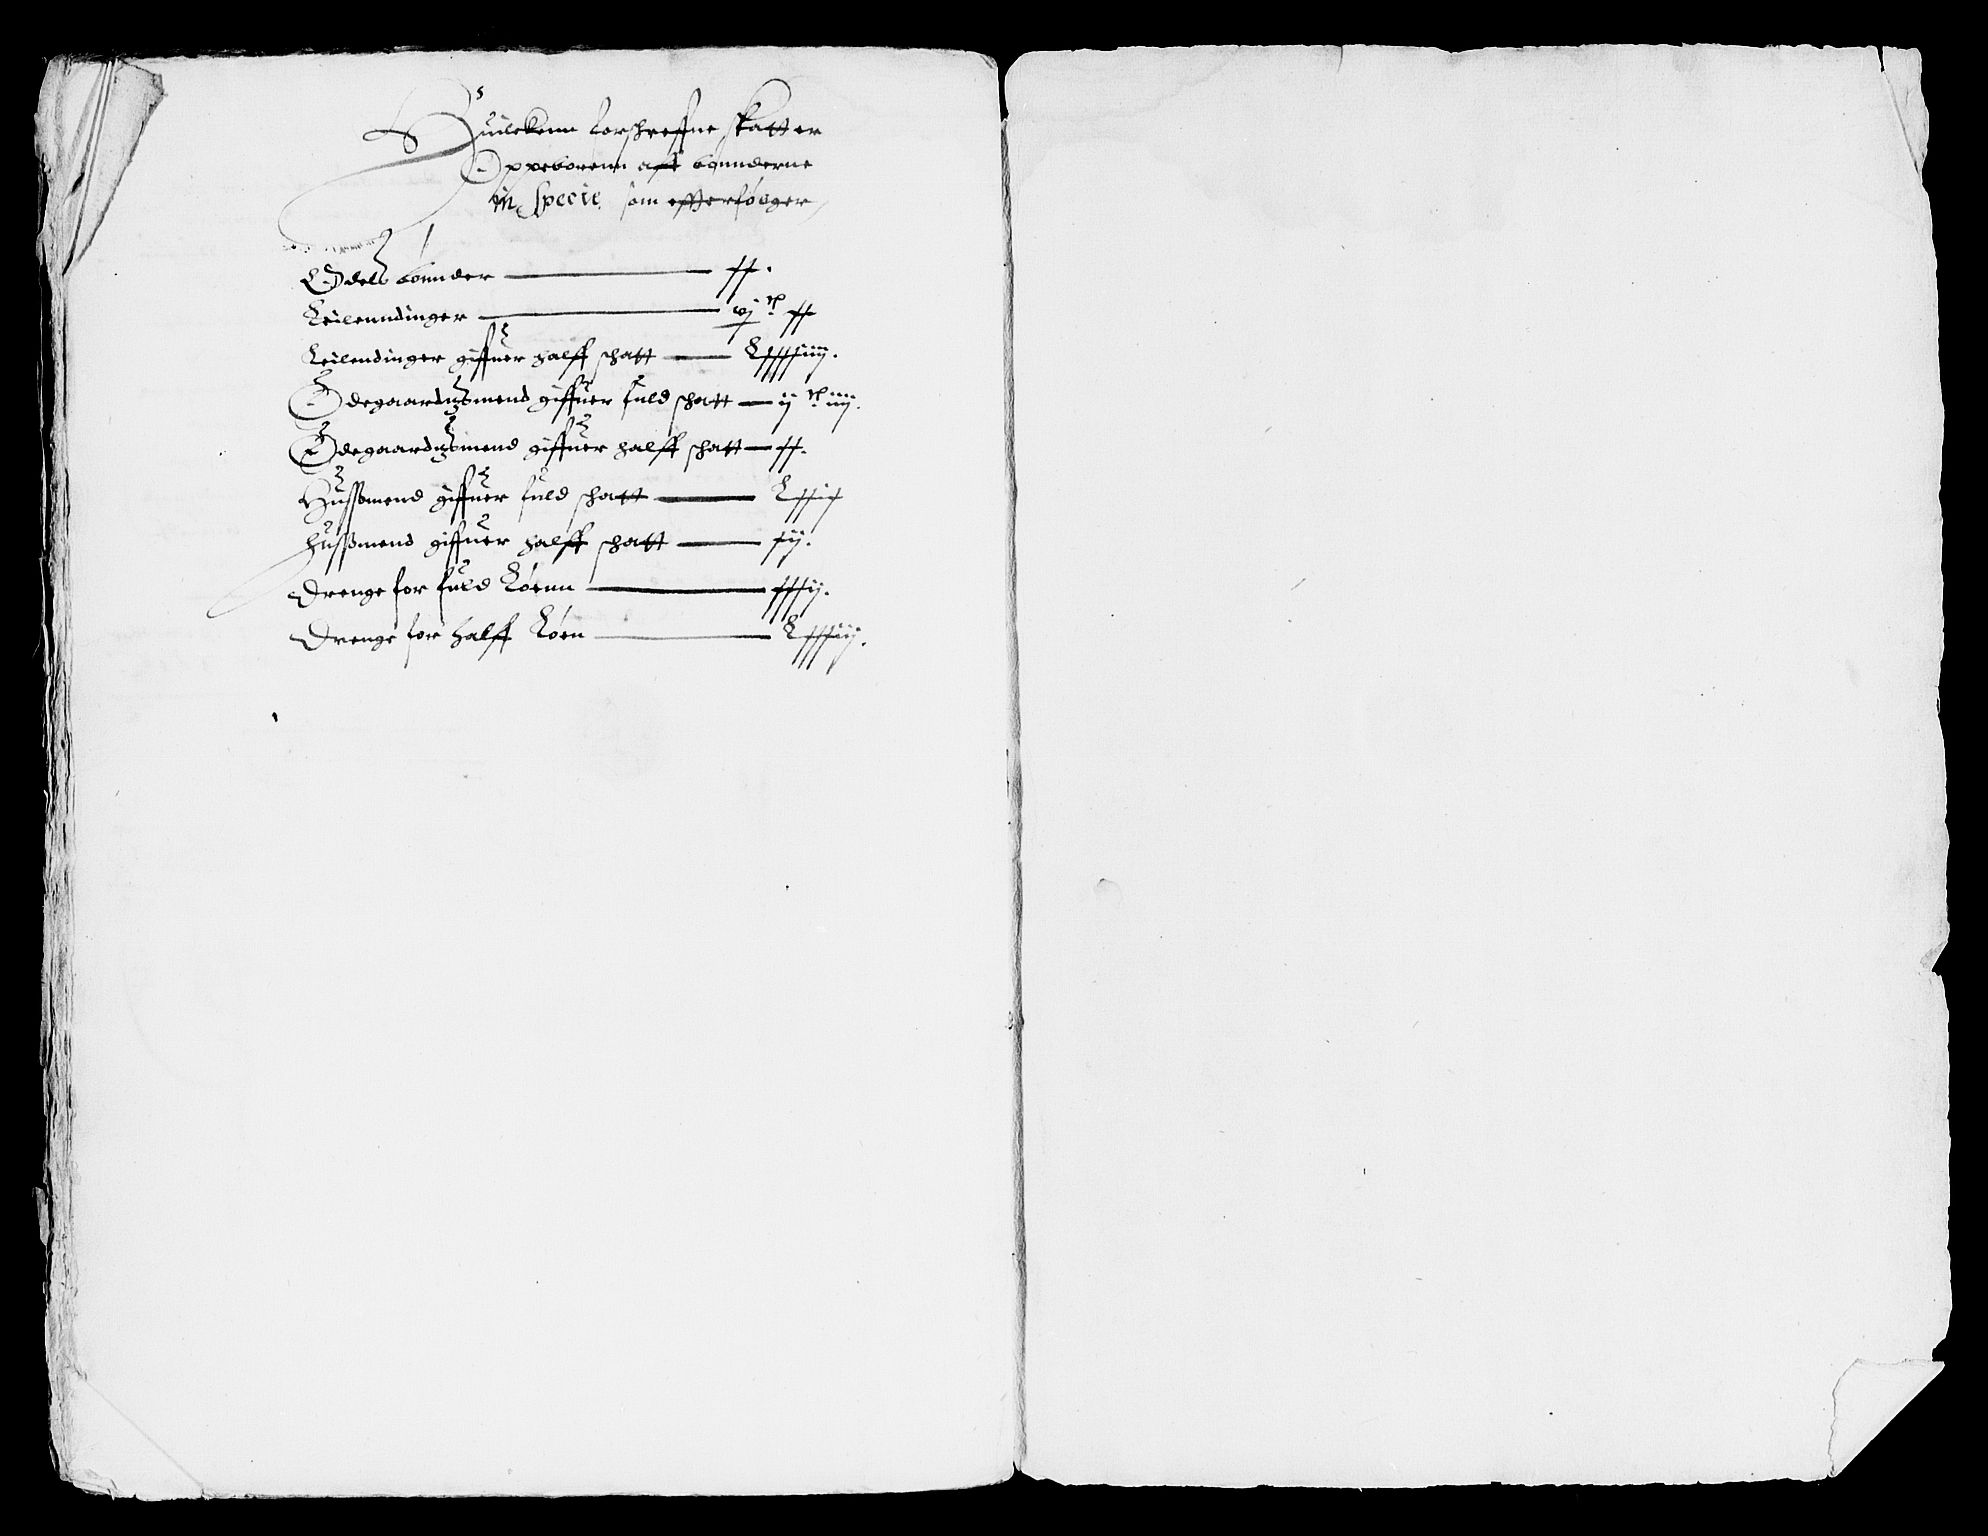 Huilckenn forschreffne skatt er
Oppeborenn aff bønnderne
in Specie som effterfølger
Odels bønnder — xx.
Leilenndinger — vj c xx
Leilendinger giffuer halff schatt — Lxxxxiiij.
Ødegaardtzmend giffuer fuld schatt — ij c iiij.
Ødegaardtzmend giffuer halff schatt — xx.
Hussmend giffuer fuld schatt — Lxxix
Hussmend giffuer halff schatt — xij.
Drenge for fuld Løenn — xxxij.
Drenge for halff Løen — Lxxxiij.